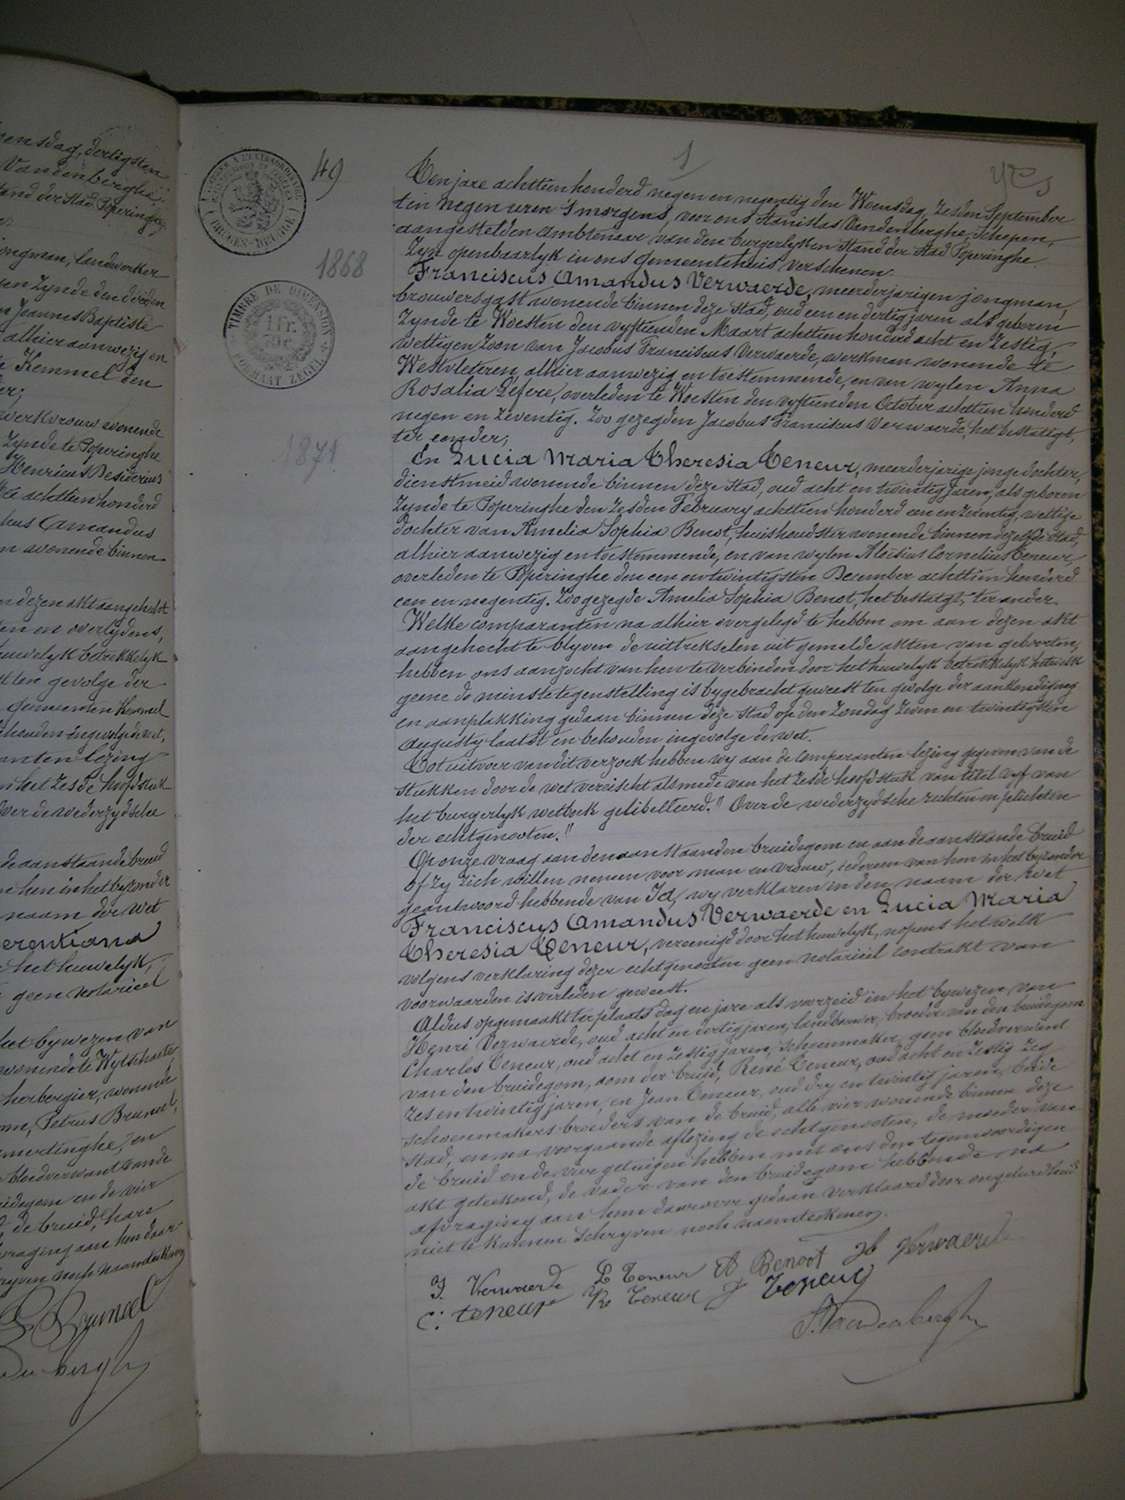 49
1
1868
1871
TIMBRE DE DIMENSION
1 Fr.
FORMAAT ZEGEL
Ten jare achttien honderd negen en negentig den Woensdag, Zesden September
ten negen uren 's morgens, voor ons Stanislas Vandenberghe, Schepen,
aangestelden Ambtenaar van den burgerlyken Stand der Stad Poperinghe
Zyn openbaarlyk in ons Gemeentehuis verschenen:
Franciscus Amandus Verwaerde, meerderjarigen jongman,
brouwersgast wonende binnen deze Stad, oud een en dertig jaren als geboren
Zynde te Woesten den vyftienden Maart achttien honderd acht en Zestig,
wettigen Zoon van Jacobus Franciscus Verwaerde, werkman wonende te
Westvleteren, alhier aanwezig en toestemmende, en van wylen Anna
Rosalia Lefere, overleden te Woesten den vyftienden October achttien honderd
negen en Zeventig. Zoo gezegden Jacobus Franciscus Verwaerde, het bestatigt,
ter eender;
En Lucia Maria Theresia Teneur, meerderjarige jonge dochter,
dienstmeid wonende binnen deze Stad, oud acht en twintig jaren, als geboren
Zynde te Poperinghe den Zesden February achttien honderd een en Zeventig, wettige
Dochter van Amelia Sophia Benot, huishoudster wonende binnen deze Stad,
alhier aanwezig en toestemmende, en van wylen Aloïsius Cornelius Teneur,
overleden te Poperinghe den een en twintigsten December achttien honderd
een en negentig. Zoo gezegde Amelia Sophia Benot, het bestatigt, ter ander.
Welke comparanten na alhier overgelegd te hebben om aan dezen akt
aangehecht te blyven de uittrekselen uit gemelde akten van geboorten,
hebben ons aanzocht van hen te verbinden door het huwelyk betrekkelyk hetwelk
geene de minste tegenstelling is bygebracht geweest ten gevolge der aankondiging
en aanplakking gedaan binnen deze Stad op den Zondag Zeven en twintigsten
Augusty laatst en behouden ingevolge de wet.
Tot uitvoer van dit verzoek hebben wy aan de Comparanten lezing gegeven van de
stukken door de wet vereischt alsmede van het Zesde hoofdstuk van titel vyf van
het burgerlyk wetboek getibelleerd: " Over de wederzydsche rechten en plichten
der echtgenooten."
Op onze vraag aan den aanstaanden bruidegom en aan de aanstaande bruid
of Zy Zich willen nemen voor man en vrouw, iedereen van hen in het byzonder
geantwoord hebbende van Ja, wy verklaren in den naam der wet
Franciscus Amandus Verwaerde en Lucia Maria
Theresia Teneur, vereenigd door het huwelyk, nopens het welk
volgens verklaring dezer echtgenooten geen notariëel contrakt van
voorwaarden is verleden geweest.
Aldus opgemaakt ter plaats dag en jare als voorzeid in het bywezen van
Henri Verwaerde, oud acht en dertig jaren, landbouwer, broeder van den bruidegom
Charles Teneur, oud acht en Zestig jaren, schoenmaker, geen bloedverwant
van den bruidegom, oom der bruid, René Teneur, oud
Zes en twintig jaren, en Jean Teneur, oud dry en twintig jaren, beide
schoenmakers broeders van de bruid alle vier wonende binnen deze
Stad, en na voorgaande aflezing de echtgenooten, de moeder van
de bruid en de vier getuigen hebben met ons den tegenwoordigen
akt geteekend, de vader van den bruidegom hebbende na
afvraging aan hem daarover gedaan verklaard door ongeleerdheid
niet te kunnen schryven noch naamteekenen.
F. Verwaerde L Teneur A Benoot H Verwaerde
C: teneur R Teneur J Teneur
S. Vandenberghe